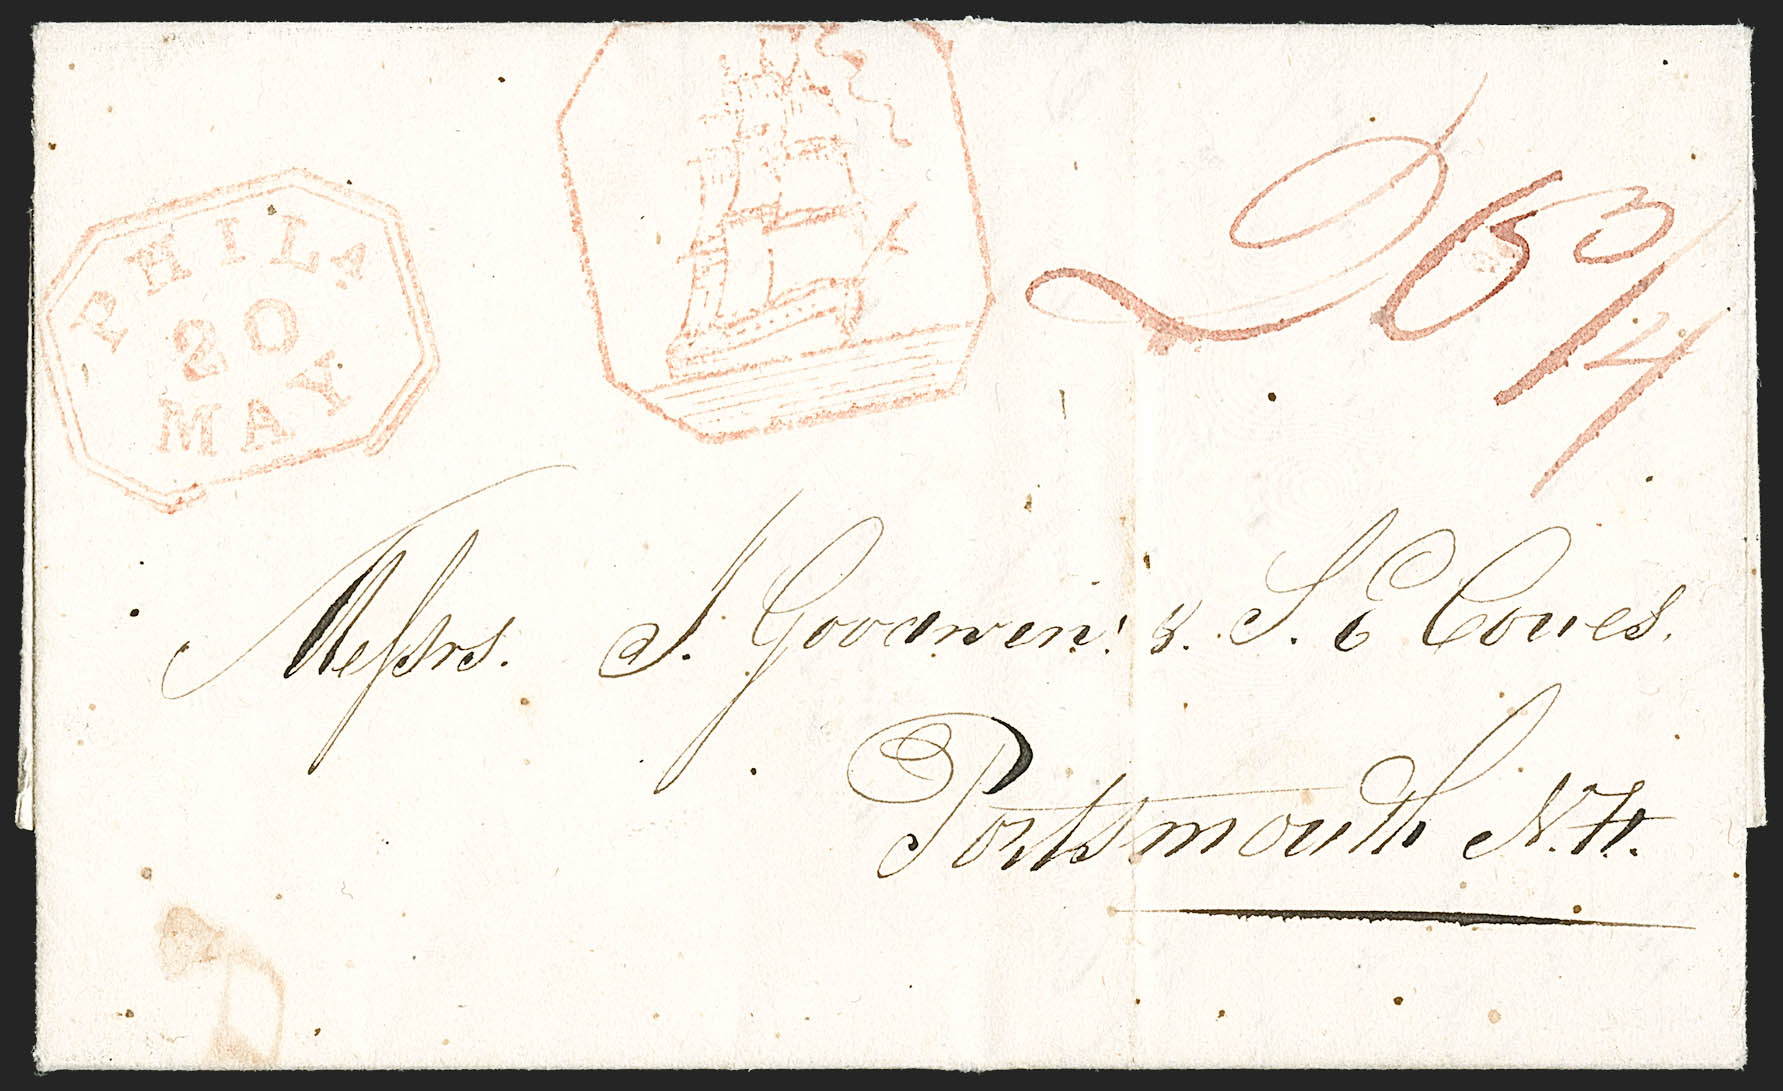 PHILA
20
MAY
D 63 3/4
Messrs. I. Goodwin & S. E Coues.
Portsmouth N.H.